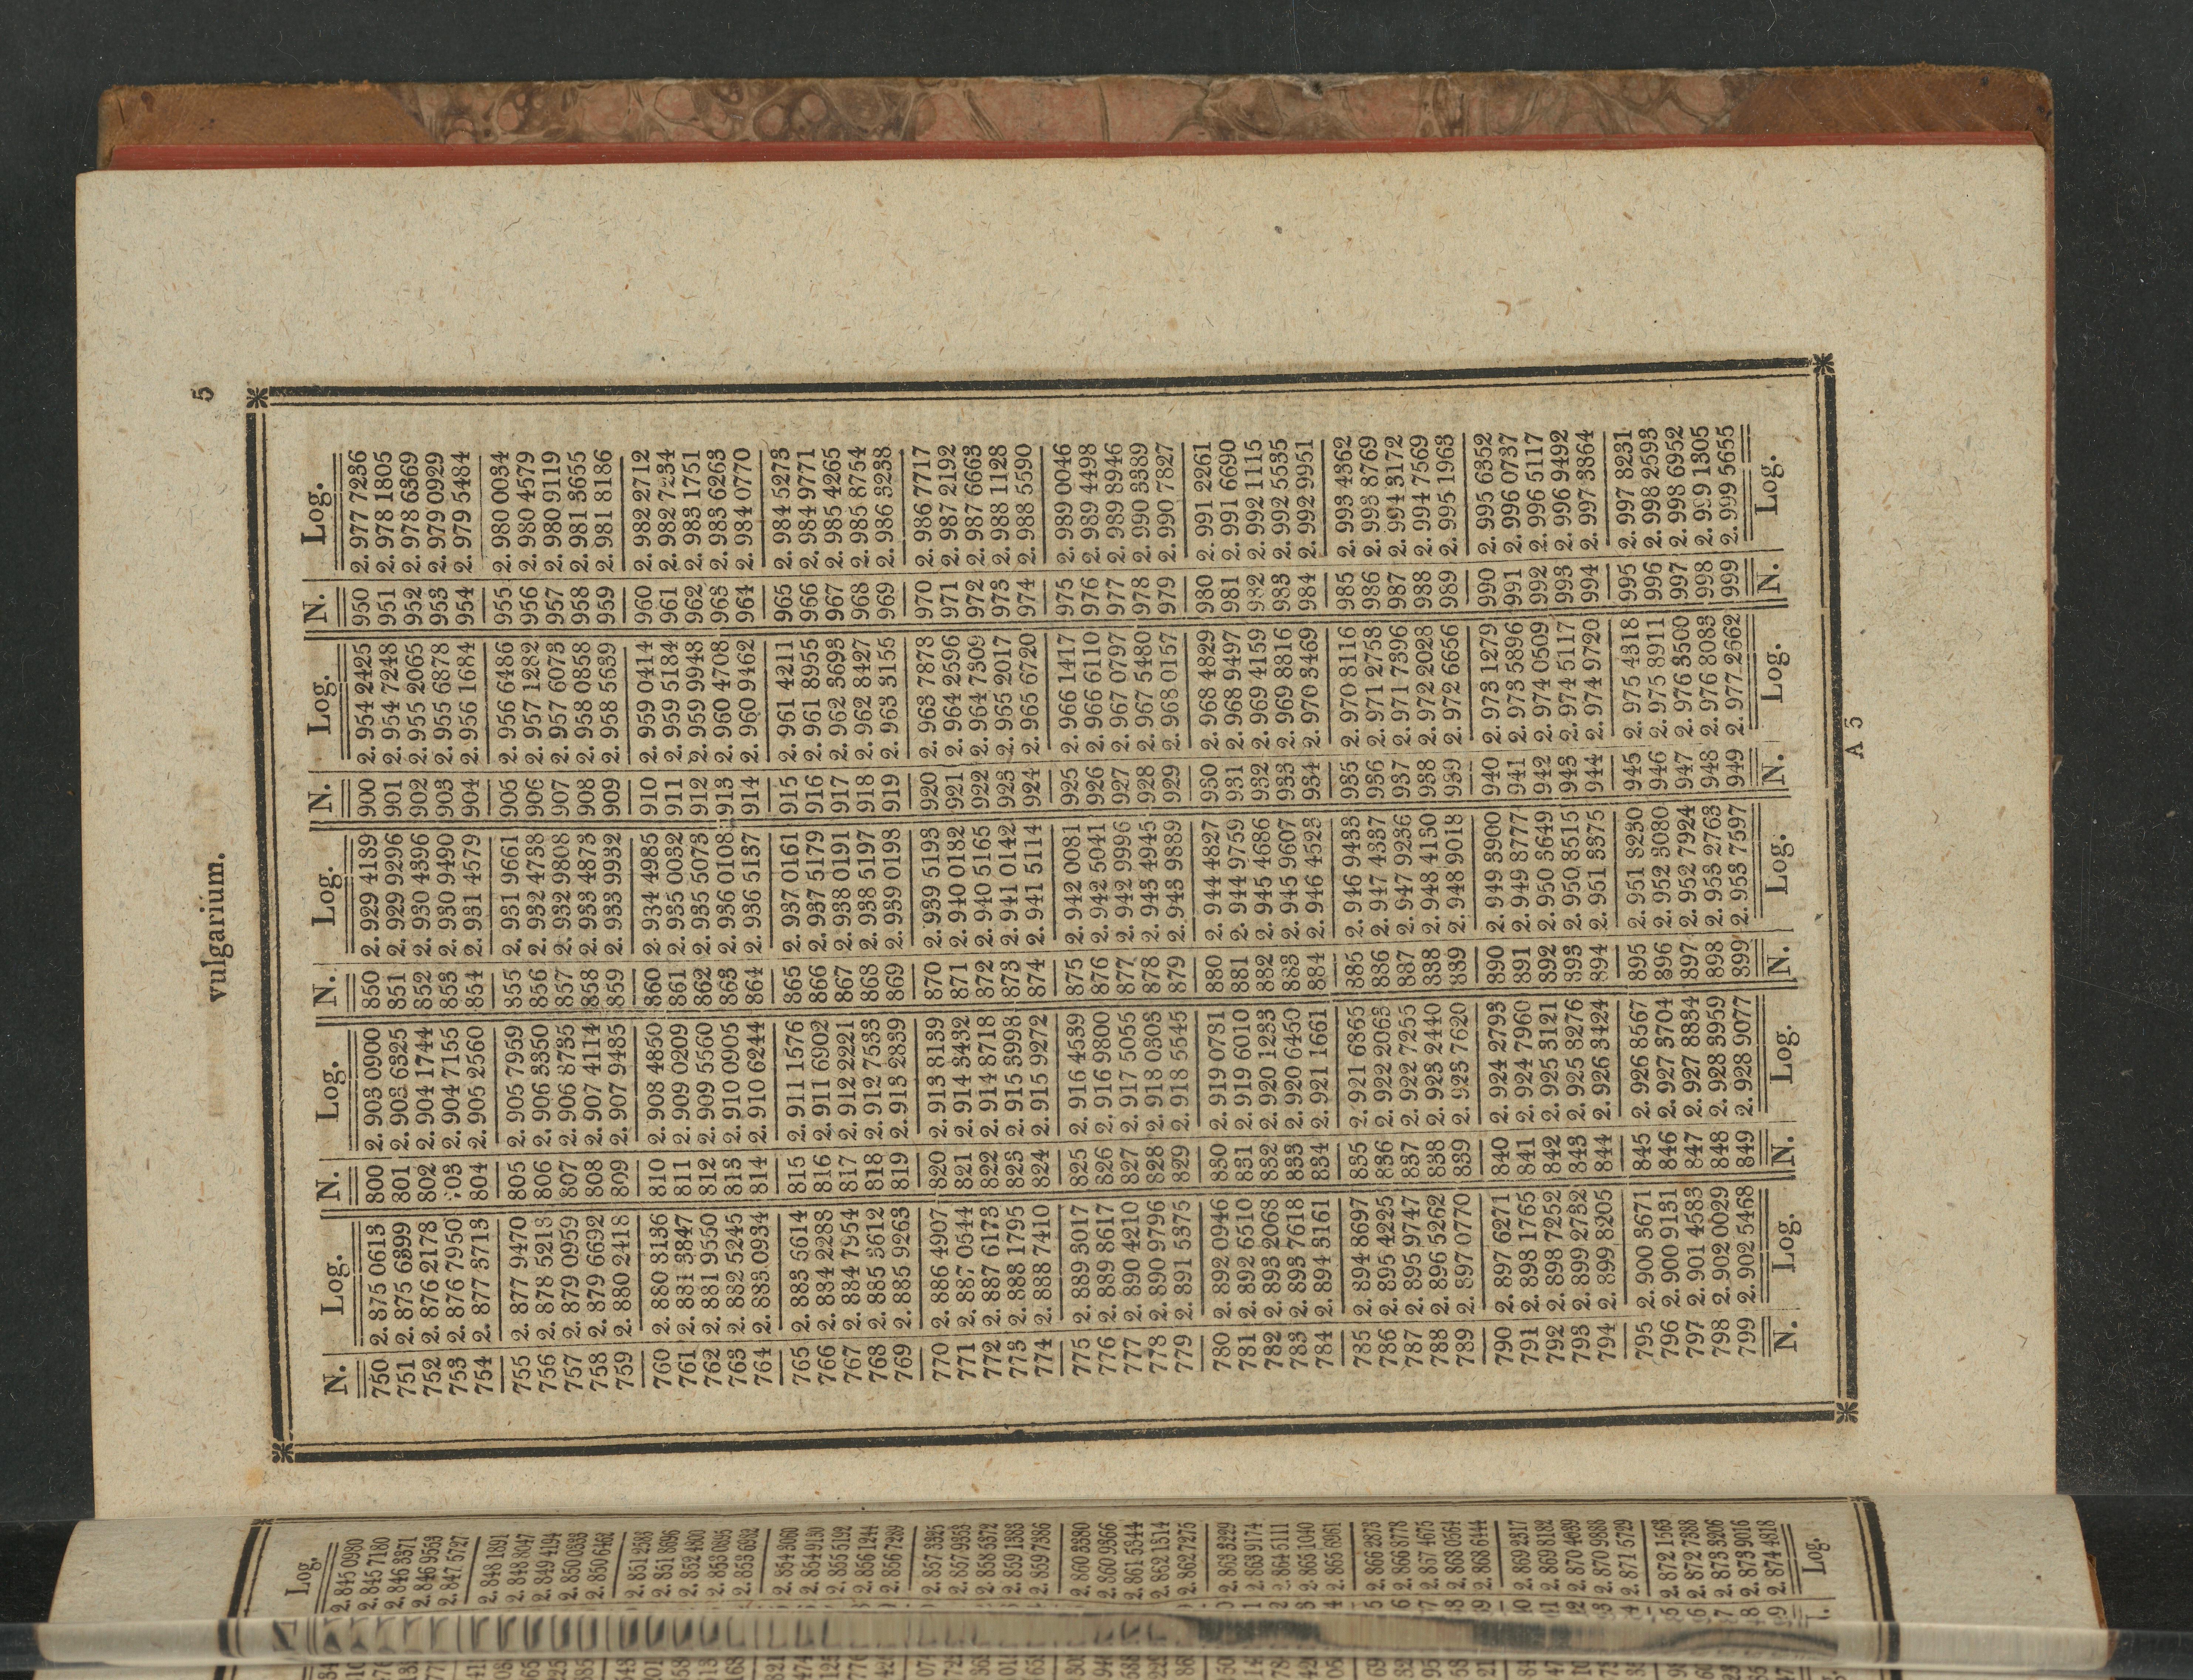 Log.
2. 845 0980
2. 845 7180
2. 846 3371
2. 846 9553
2. 847 5727
2. 848 1891
2. 848 8047
2. 849 4194
2. 850 0333
2. 850 6462
2. 851 2583
2. 851 8696
2. 852 4800
2. 853 0895
2. 853 6982
2. 854 3060
2. 854 9130
2. 855 5192
2. 856 1244
2. 856 7289
2. 857 3325
2. 857 9353
2. 858 5372
2. 859 1383
2. 859 7386
2. 860 3380
2. 860 9366
2. 861 5344
2. 862 1314
2. 862 7275
2. 863 3229
2. 863 9174
2. 864 5111
2. 865 1040
2. 865 6961
2. 866 2873
2. 866 8778
2. 867 4675
2. 868 0564
2. 868 6444
2. 869 2317
2. 869 8182
2. 870 4039
2. 870 9888
2. 871 5729
2. 872 1563
2. 872 7388
2. 873 3206
2. 873 9016
2. 874 4818
Log.
vulgarium. 5
N. Log. N. Log. N. Log. N. Log. N. Log.
750 2. 875 0613 800 2. 903 0900 850 2. 929 4189 900 2. 954 2425 950 2. 977 7236
751 2. 875 6399 801 2. 903 6325 851 2. 929 9296 901 2. 954 7248 951 2. 978 1805
752 2. 876 2178 802 2. 904 1744 852 2. 930 4396 902 2. 955 2065 952 2. 978 6369
753 2. 876 7950 03 2. 904 7155 853 2. 930 9490 903 2. 955 6878 953 2. 979 0929
754 2. 877 3713 804 2. 905 2560 854 2. 931 4579 904 2. 956 1684 954 2. 979 5484
755 2. 877 9470 805 2. 905 7959 855 2. 931 9661 905 2. 956 6486 955 2. 980 0034
756 2. 878 5218 806 2. 906 3350 856 2. 932 4738 906 2. 957 1282 956 2. 980 4579
757 2. 879 0959 807 2. 906 8735 857 2. 932 9808 907 2. 957 6073 957 2. 980 9119
758 2. 879 6692 808 2. 907 4114 858 2. 933 4873 908 2. 958 0858 958 2. 981 3655
759 2. 880 2418 809 2. 907 9485 859 2. 933 9932 909 2. 958 5639 959 2. 981 8186
760 2. 880 8136 810 2. 908 4850 860 2. 934 4985 910 2. 959 0414 960 2. 982 2712
761 2. 881 3847 811 2. 909 0209 861 2. 935 0032 911 2. 959 5184 961 2. 982 7234
762 2. 881 9550 812 2. 909 5560 862 2. 935 5073 912 2. 959 9948 962 2. 983 1751
763 2. 882 5245 813 2. 910 0905 863 2. 936 0108 913 2. 960 4708 963 2. 983 6263
764 2. 883 0934 814 2. 910 6244 864 2. 936 5137 914 2. 960 9462 964 2. 984 0770
765 2. 883 6614 815 2. 911 1576 865 2. 937 0161 915 2. 961 4211 965 2. 984 5273
766 2. 884 2288 816 2. 911 6902 866 2. 937 5179 916 2. 961 8955 966 2. 984 9771
767 2. 884 7954 817 2. 912 2221 867 2. 938 0191 917 2. 962 3693 967 2. 985 4265
768 2. 885 3612 818 2. 912 7533 868 2. 938 5197 918 2. 962 8427 968 2. 985 8754
769 2. 885 9263 819 2. 913 2839 869 2. 939 0198 919 2. 963 3155 969 2. 986 3238
770 2. 886 4907 820 2. 913 8139 870 2. 939 5193 920 2. 963 7878 970 2. 986 7717
771 2. 887 0544 821 2. 914 3432 871 2. 940 0182 921 2. 964 2596 971 2. 987 2192
772 2. 887 6173 822 2. 914 8718 872 2. 940 5165 922 2. 964 7309 972 2. 987 6663
773 2. 888 1795 823 2. 915 3998 873 2. 941 0142 923 2. 965 2017 973 2. 988 1128
774 2. 888 7410 824 2. 915 9272 874 2. 941 5114 924 2. 965 6720 974 2. 988 5590
775 2. 889 3017 825 2. 916 4539 875 2. 942 0081 925 2. 966 1417 975 2. 989 0046
776 2. 889 8617 826 2. 916 9800 876 2. 942 5041 926 2. 966 6110 976 2. 989 4498
777 2. 890 4210 827 2. 917 5055 877 2. 942 9996 927 2. 967 0797 977 2. 989 8946
778 2. 890 9796 828 2. 918 0303 878 2. 943 4945 928 2. 967 5480 978 2. 990 3389
779 2. 891 5375 829 2. 918 5545 879 2. 943 9889 929 2. 968 0157 979 2. 990 7827
780 2. 892 0946 830 2. 919 0781 880 2. 944 4827 930 2. 968 4829 980 2. 991 2261
781 2. 892 6510 831 2. 919 6010 881 2. 944 9759 931 2. 968 9497 981 2. 991 6690
782 2. 893 2068 832 2. 920 1233 882 2. 945 4686 932 2. 969 4159 982 2. 992 1115
783 2. 893 7618 833 2. 920 6450 883 2. 945 9607 933 2. 969 8816 983 2. 992 5535
784 2. 894 3161 834 2. 921 1661 884 2. 946 4523 934 2. 970 3469 984 2. 992 9951
785 2. 894 8697 835 2. 921 6865 885 2. 946 9433 935 2. 970 8116 985 2. 993 4362
786 2. 895 4225 836 2. 922 2063 886 2. 947 4337 936 2. 971 2758 986 2. 993 8769
787 2. 895 9747 837 2. 922 7255 887 2. 947 9236 937 2. 971 7396 987 2. 994 3172
788 2. 896 5262 838 2. 923 2440 888 2. 948 4130 938 2. 972 2028 988 2. 994 7569
789 2. 897 0770 839 2. 923 7620 889 2. 948 9018 939 2. 972 6656 989 2. 995 1963
790 2. 897 6271 840 2. 924 2793 890 2. 949 3900 940 2. 973 1279 990 2. 995 6352
791 2. 898 1765 841 2. 924 7960 891 2. 949 8777 941 2. 973 5896 991 2. 996 0737
792 2. 898 7252 842 2. 925 3121 892 2. 950 3649 942 2. 974 0509 992 2. 996 5117
793 2. 899 2732 843 2. 925 8276 893 2. 950 8515 943 2. 974 5117 993 2. 996 9492
794 2. 899 8205 844 2. 926 3424 894 2. 951 3375 944 2. 974 9720 994 2. 997 3864
795 2. 900 3671 845 2. 926 8567 895 2. 951 8230 945 2. 975 4318 995 2. 997 8231
796 2. 900 9131 846 2. 927 3704 896 2. 952 3080 946 2. 975 8911 996 2. 998 2593
797 2. 901 4583 847 2. 927 8834 897 2. 952 7924 947 2. 976 3500 997 2. 998 6952
798 2. 902 0029 848 2. 928 3959 898 2. 953 2763 948 2. 976 8083 998 2. 999 1305
799 2. 902 5468 849 2. 928 9077 899 2. 953 7597 949 2. 977 2662 999 2. 999 5655
N. Log. N. Log. N. Log. N. Log. N. Log.
A 5